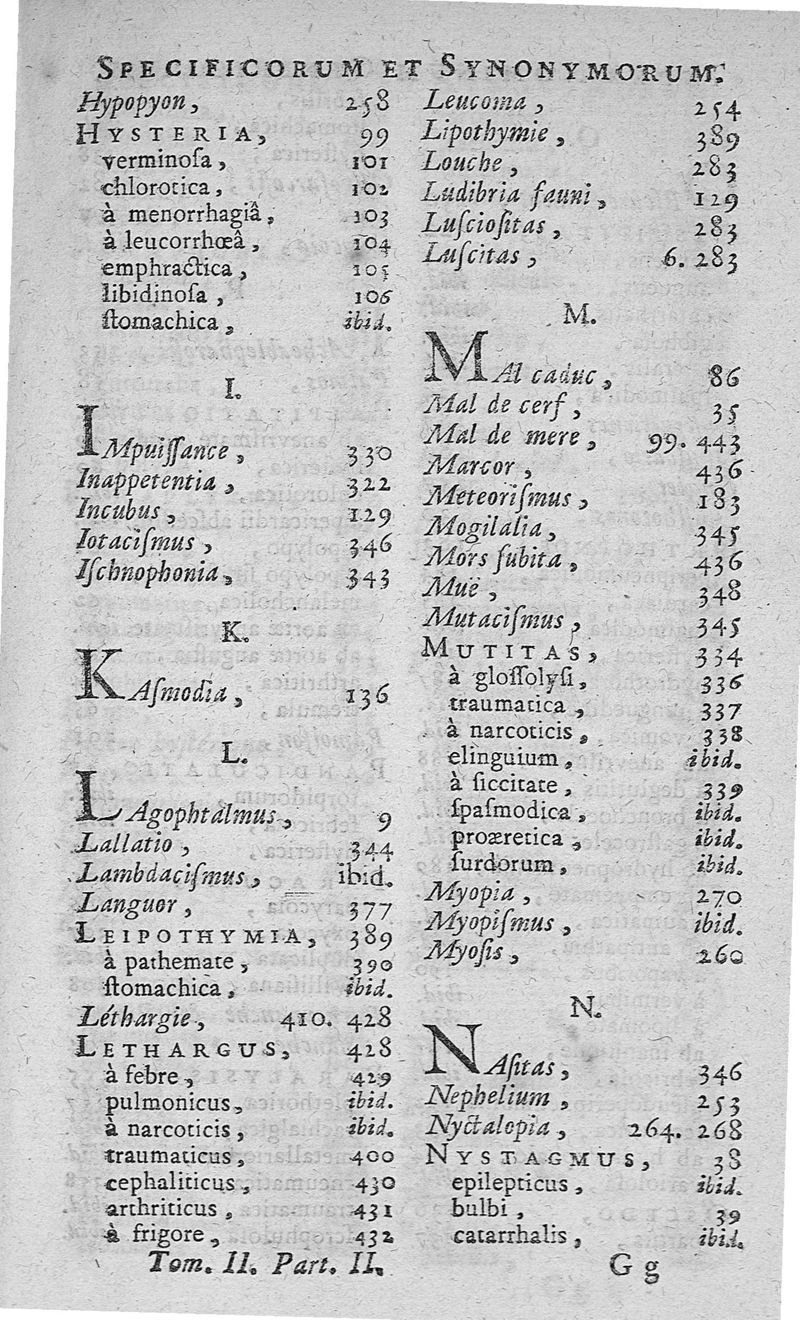 SPECIFICORUM ET SYNONYMORUM.
Hypopyon, 258
HYSTERIA, 99
verminoſa, 101
chlorotica, 102
à menorrhagiâ, 103
à leucorrhœâ, 104
emphractica, 105
libidinoſa, 106
ſtomachica, ibid.
I.
IMpuiſſance, 330
Inappetentia, 322
Incubus, 129
Iotaciſmus, 346
Iſchnophonia, 343
K.
KAſmodia, 136
L.
LAgophtalmus, 9
Lallatio, 344
Lambdaciſmus, ibid.
Languor, 377
LEIPOTHYMIA, 389
à pathemate, 390
ſtomachica, ibid.
Léthargie, 410. 428
LETHARGUS, 428
à febre, 429
pulmonicus, ibid.
à narcoticis, ibid.
traumaticus, 400
cephaliticus, 430
arthriticus, 431
à frigore, 432
Tom. II. Part. II.
Leucoma, 254
Lipothymie, 389
Louche, 283
Ludibria fauni, 129
Luſcioſitas, 283
Luſcitas, 6. 283
M.
MAl caduc, 86
Mal de cerf, 35
Mal de mere, 99. 443
Marcor, 436
Meteoriſmus, 183
Mogilalia, 345
Mors ſubita, 436
Muë, 348
Mutaciſmus, 345
MUTITAS, 334
à gloſſolyſi, 336
traumatica, 337
à narcoticis, 338
elinguium, ibid.
à ſiccitate, 339
ſpaſmodica, ibid.
proæretica, ibid.
ſurdorum, ibid.
Myopia, 270
Myopiſmus, ibid.
Myoſis, 260
N.
NAſitas, 346
Nephelium, 253
Nyctalopia, 264. 268
NYSTAGMUS, 38
epilepticus, ibid.
bulbi, 39
catarrhalis, ibid.
G g